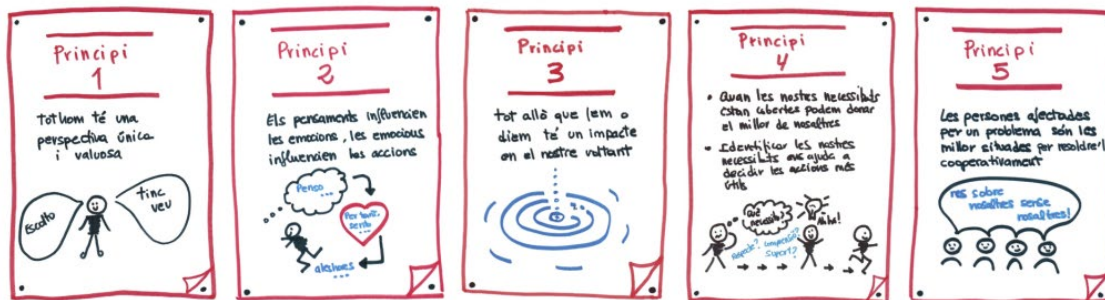 Principi
1
tothom té una
perspectiva única
i valuosa
Escolto
tinc
veu
Principi
2
Els pensaments influencien
les emocions, les emocions
influencien les accions
Penso
...
Per tant,
sento
...
aleshores
...
Principi
3
tot allò que fem o
diem té un impacte
en el nostre voltant
Principi
4
• Quan les nostres necessitats
estan cobertes podem donar
el millor de nosaltres
• Identificar les nostres
necessitats ens ajuda a
decidir les accions més
útils
què
necessito?
Respecte? Comprensió?
suport?
Principi
5
Les persones afectades
per un problema són les
millor situades per resoldre'l
cooperativament
res sobre
nosaltres sense
nosaltres!